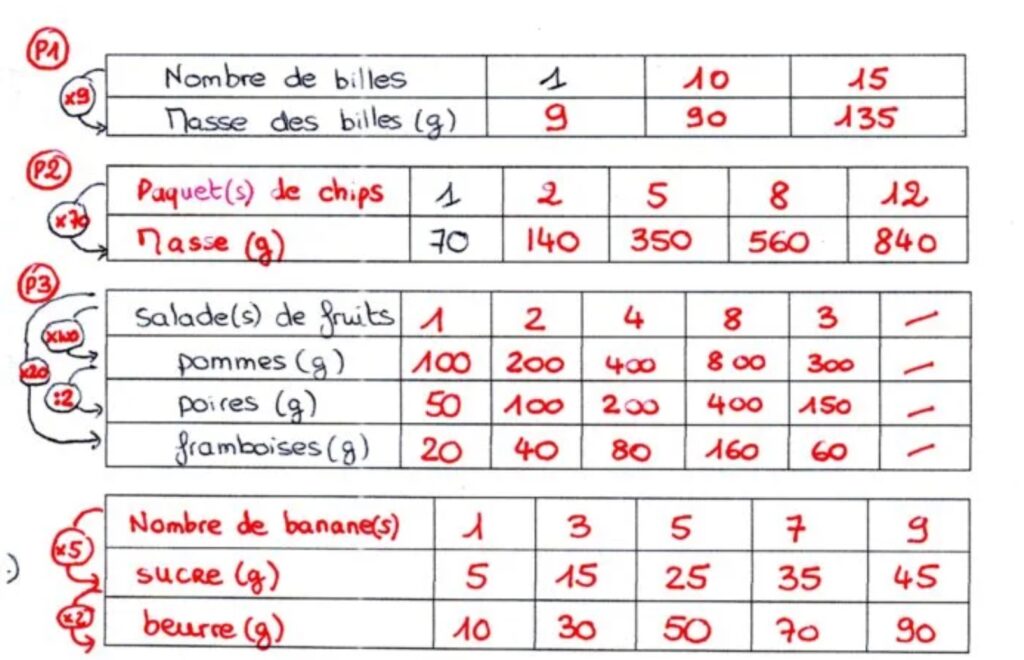 P1
Nombre de billes 1 10 15
x9
Masse des billes (g) 9 90 135
P2
Paquet(s) de chips 1 2 5 8 12
x70
Masse (g) 70 140 350 560 840
P3
Salade(s) de fruits 1 2 4 8 3 —
x100
pommes (g) 100 200 400 800 300 —
x20
:2
poires (g) 50 100 200 400 150 —
framboises (g) 20 40 80 160 60 —
Nombre de banane(s) 1 3 5 7 9
x5
sucre (g) 5 15 25 35 45
x2
beurre (g) 10 30 50 70 90